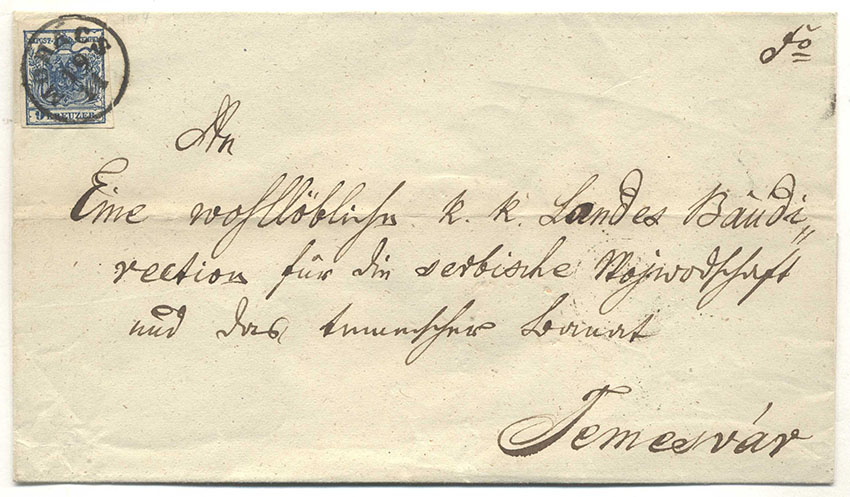 MOHÁCS
19
9 KREUZER
Fo
An
Eine wohllöbliche k. k. Landes Baudi„
rection für die serbische Wojwodschaft
und das temescher Banat
Temesvár